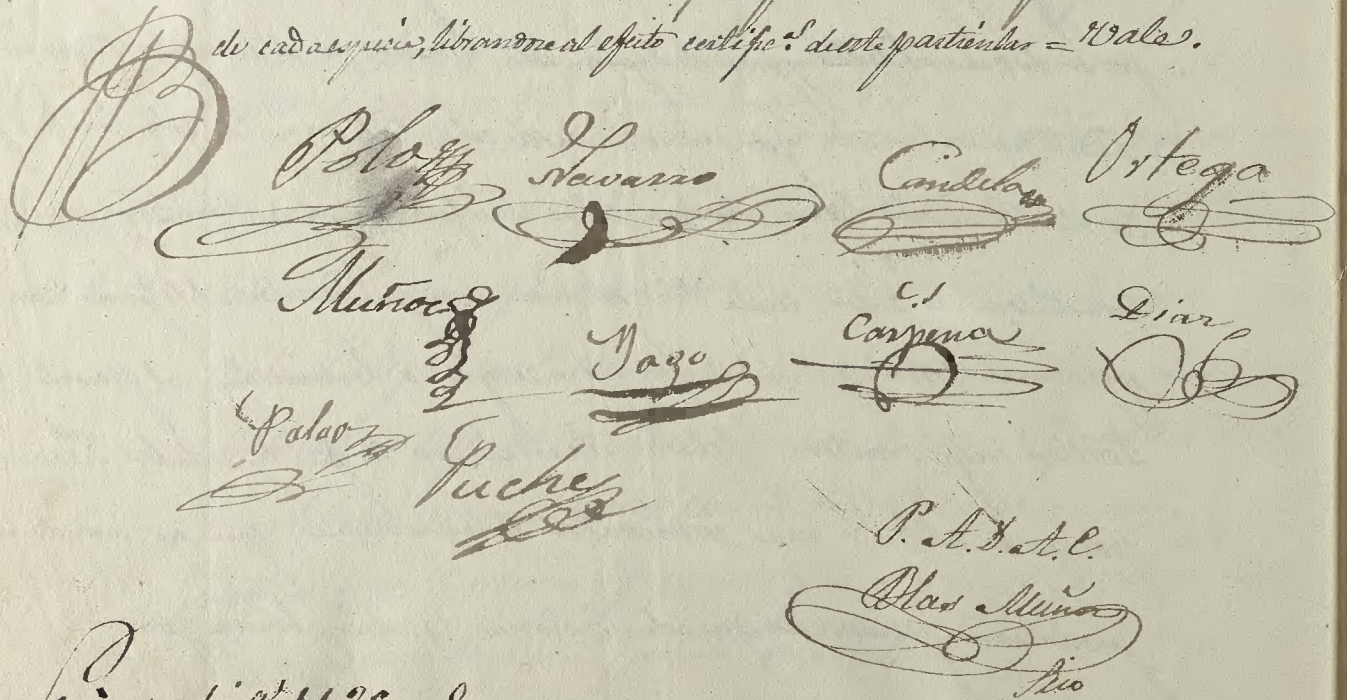 de cada especie, librandose al efecto certific.ⁿ de este particular = Vale.
Polo Navarro Candela Ortega
Muñoz Yago Carpena Diaz
Palao Puche
P. A. D. A. C.
Blas Muñoz
Srio